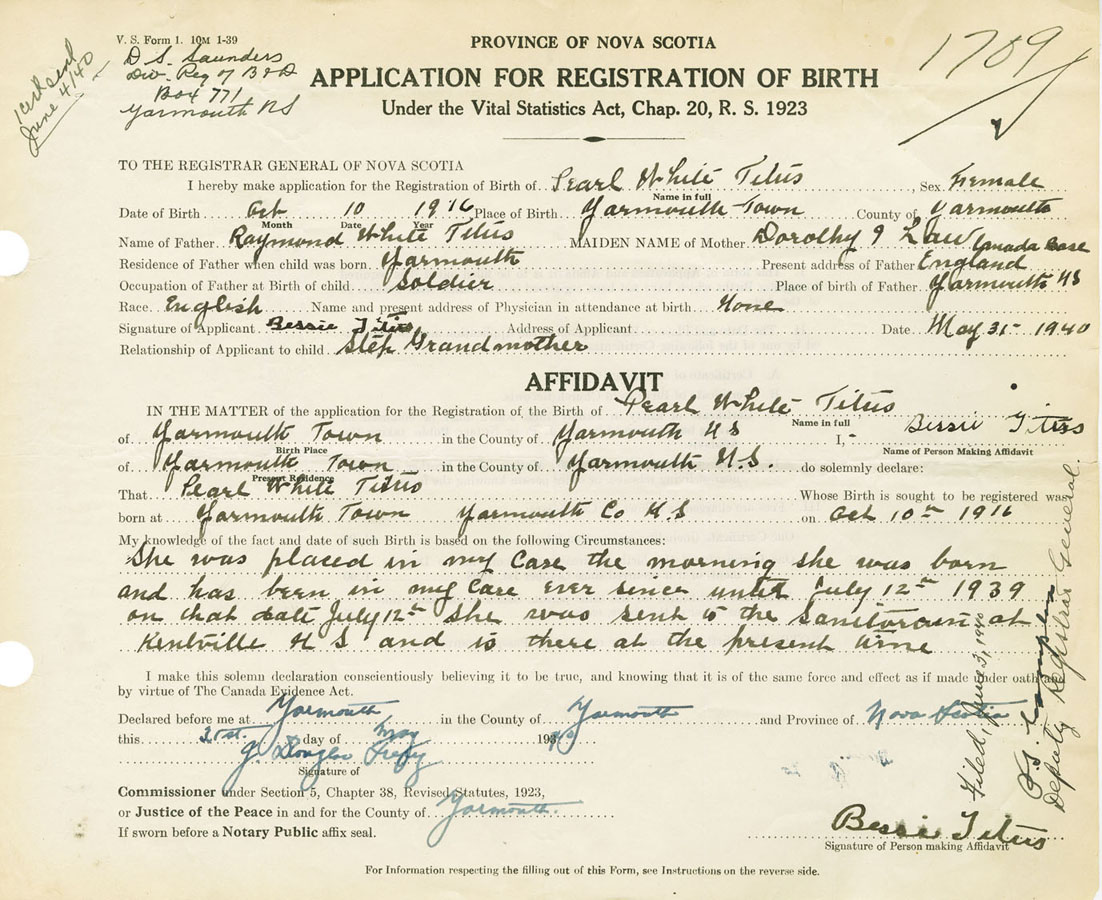 V. S. Form 1. 10M 1-39
D. S. Saunders
Div. Reg of B & D
Box 771
Yarmouth NS
June 4/40
1709
PROVINCE OF NOVA SCOTIA
APPLICATION FOR REGISTRATION OF BIRTH
Under the Vital Statistics Act, Chap. 20, R. S. 1923
TO THE REGISTRAR GENERAL OF NOVA SCOTIA
I hereby make application for the Registration of Birth of Pearl White Titus, Sex Female
Name in full
Date of Birth Oct 10 1916 Place of Birth Yarmouth Town County of Yarmouth
Month Date Year
Name of Father Raymond White Titus MAIDEN NAME of Mother Dorothy Law
Canada Base
Residence of Father when child was born Yarmouth Present address of Father England
Occupation of Father at Birth of child Soldier Place of birth of Father Yarmouth NS
Race English Name and present address of Physician in attendance at birth None
Signature of Applicant Bessie Titus Address of Applicant Date May 31 - 1940
Relationship of Applicant to child Step Grandmother
AFFIDAVIT
IN THE MATTER of the application for the Registration of the Birth of Pearl White Titus
Name in full
of Yarmouth Town in the County of Yarmouth NS I, - Bessie Titus
Birth Place Name of Person Making Affidavit
of Yarmouth Town in the County of Yarmouth N.S. do solemnly declare:
Present Residence
That Pearl White Titus Whose Birth is sought to be registered was
born at Yarmouth Town Yarmouth Co N.S on Oct 10th 1916
My knowledge of the fact and date of such Birth is based on the following Circumstances:
She was placed in my Care the morning she was born
and has been in my Care ever since until July 12th 1939
on that date July 12th she was sent to the Sanitorium at
Kentville N S and is there at the present time
I make this solemn declaration conscientiously believing it to be true, and knowing that it is of the same force and effect as if made under oath and
by virtue of The Canada Evidence Act.
Declared before me at Yarmouth in the County of Yarmouth and Province of Nova Scotia
this 31st. day of May 1940
G. Douglas
Signature of
Commissioner under Section 5, Chapter 38, Revised Statutes, 1923,
or Justice of the Peace in and for the County of Yarmouth
If sworn before a Notary Public affix seal.
Bessie Titus
Signature of Person making Affidavit
Filed, June 3, 1940
Deputy Registrar General.
For Information respecting the filling out of this Form, see Instructions on the reverse side.